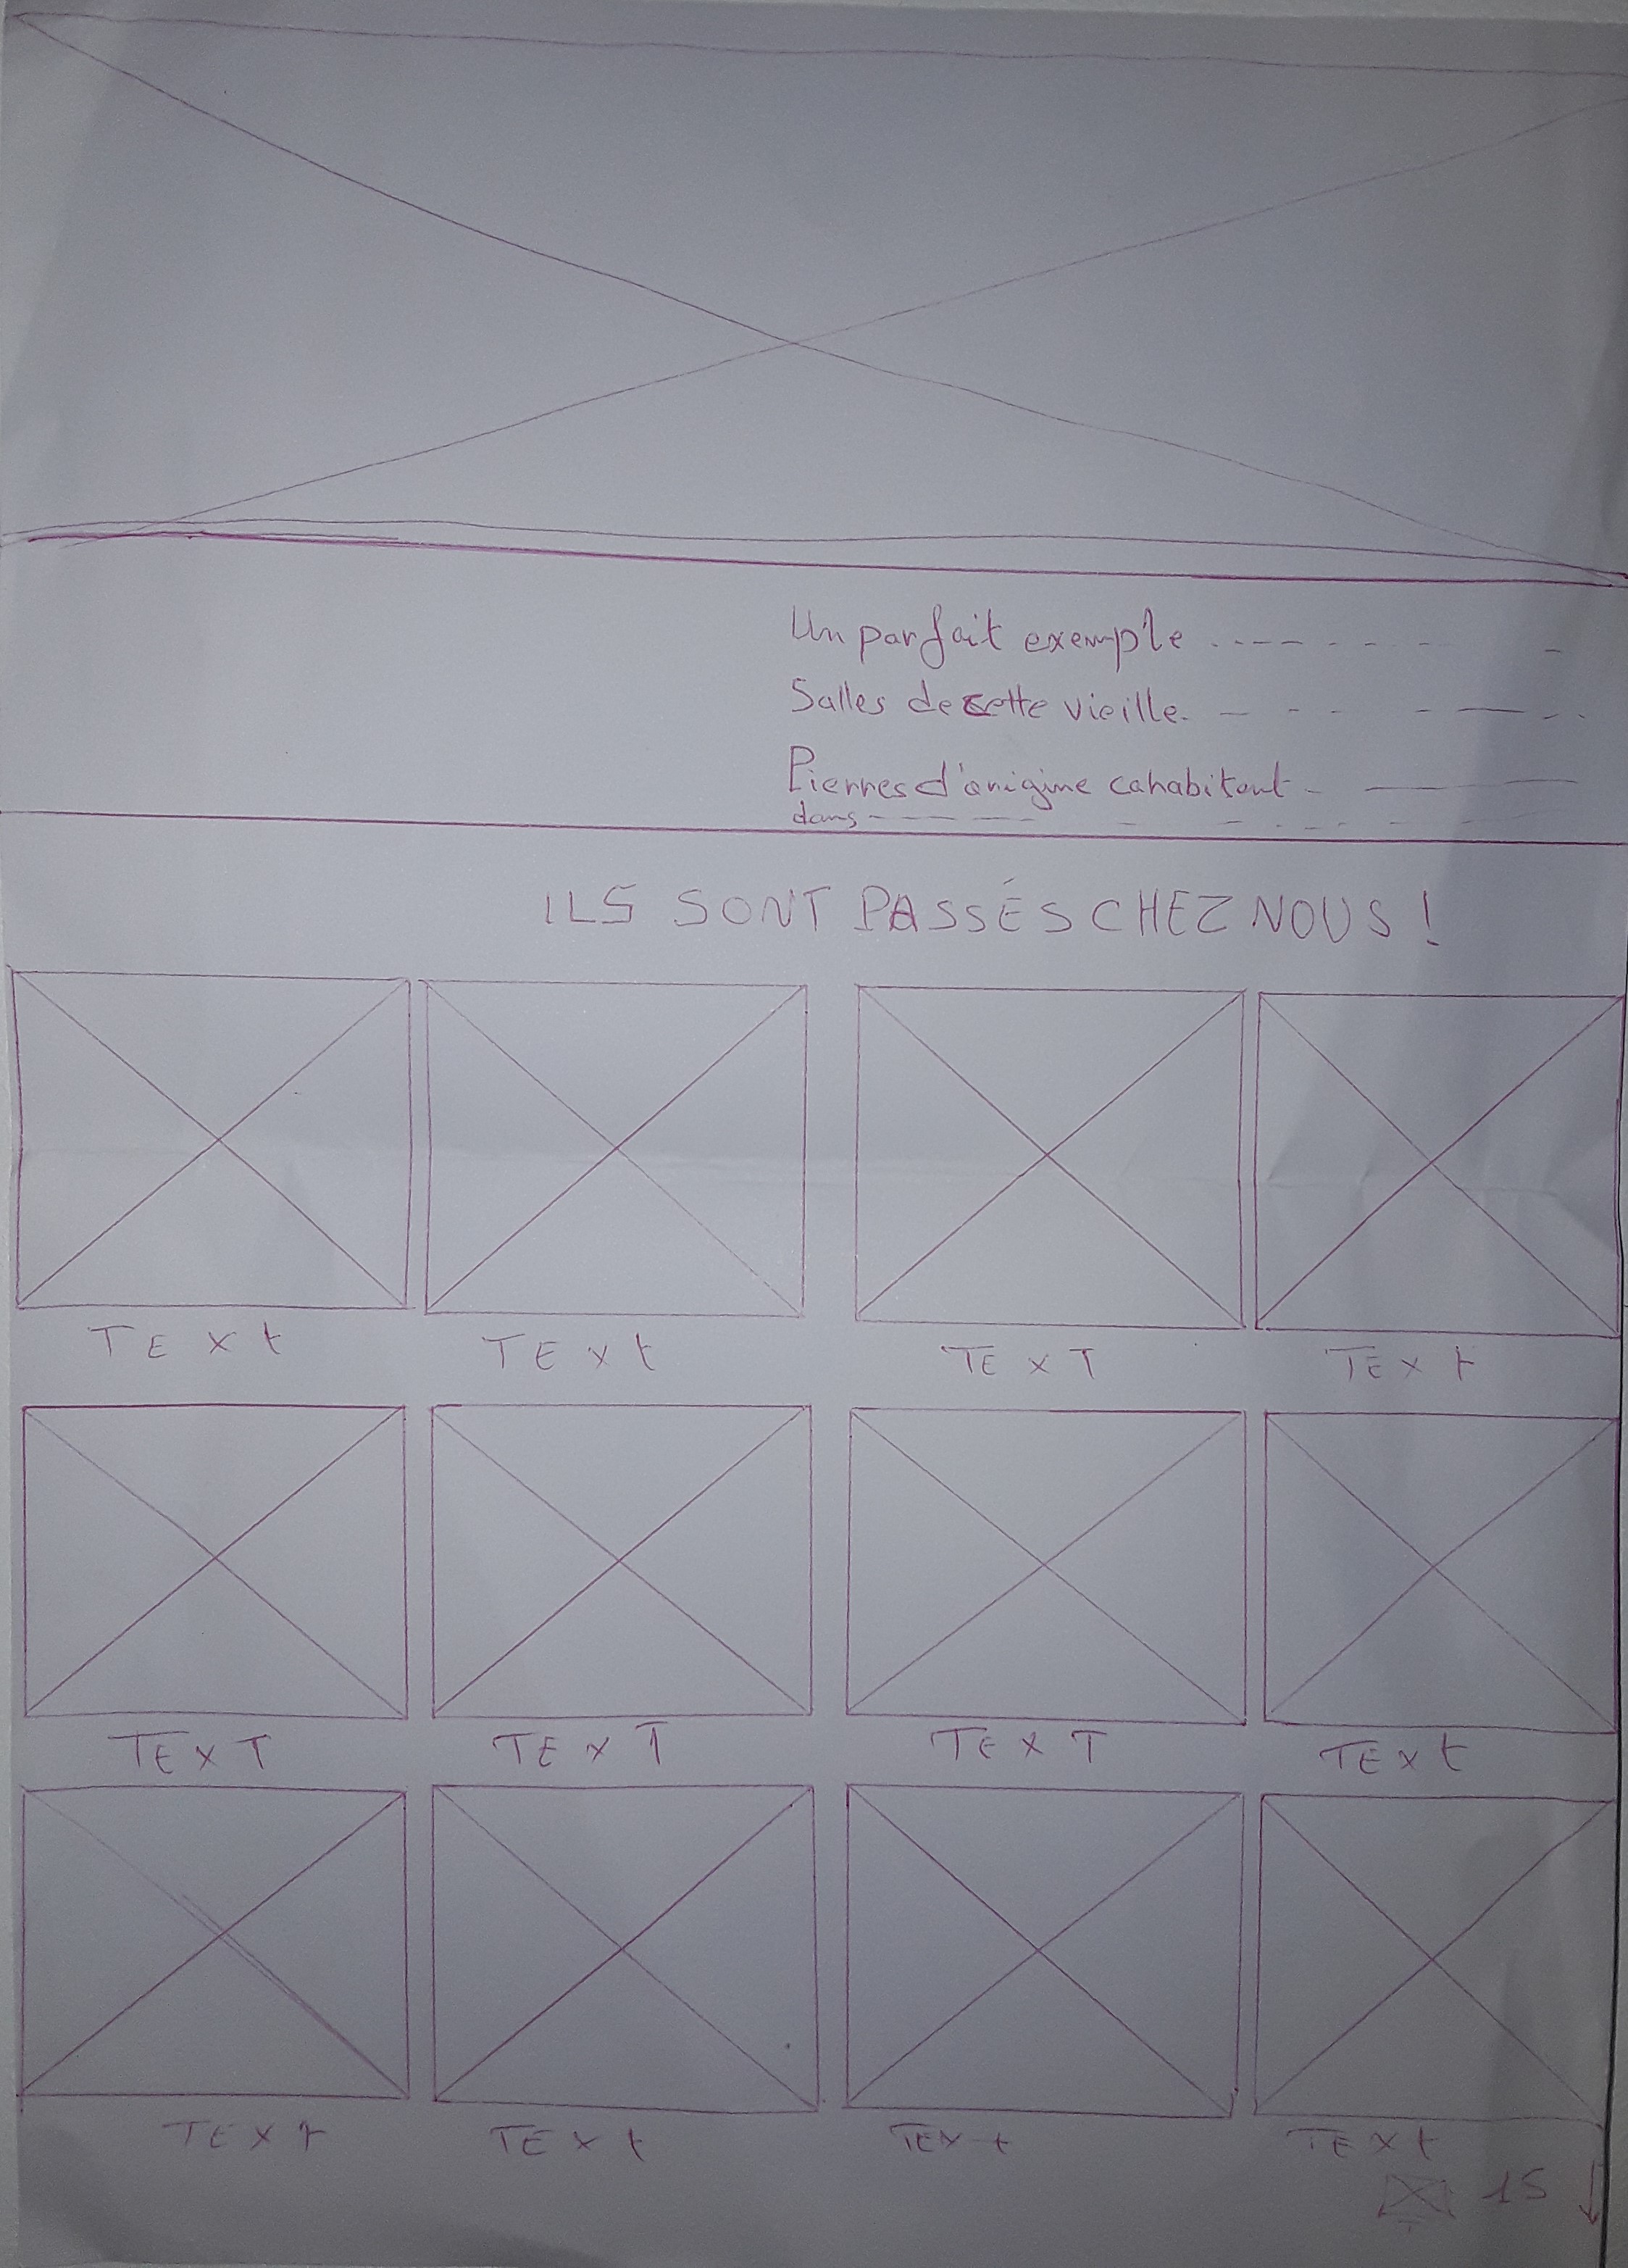 Un parfait exemple
Salles de cette vieille
Pierres d'origine cahabitent
dans
ILS SONT PASSÉS CHEZ NOUS !
TExt TExt TExT TExt
TExT TExT TExT TExt
TExt TExt TExt TExt
15 ↓